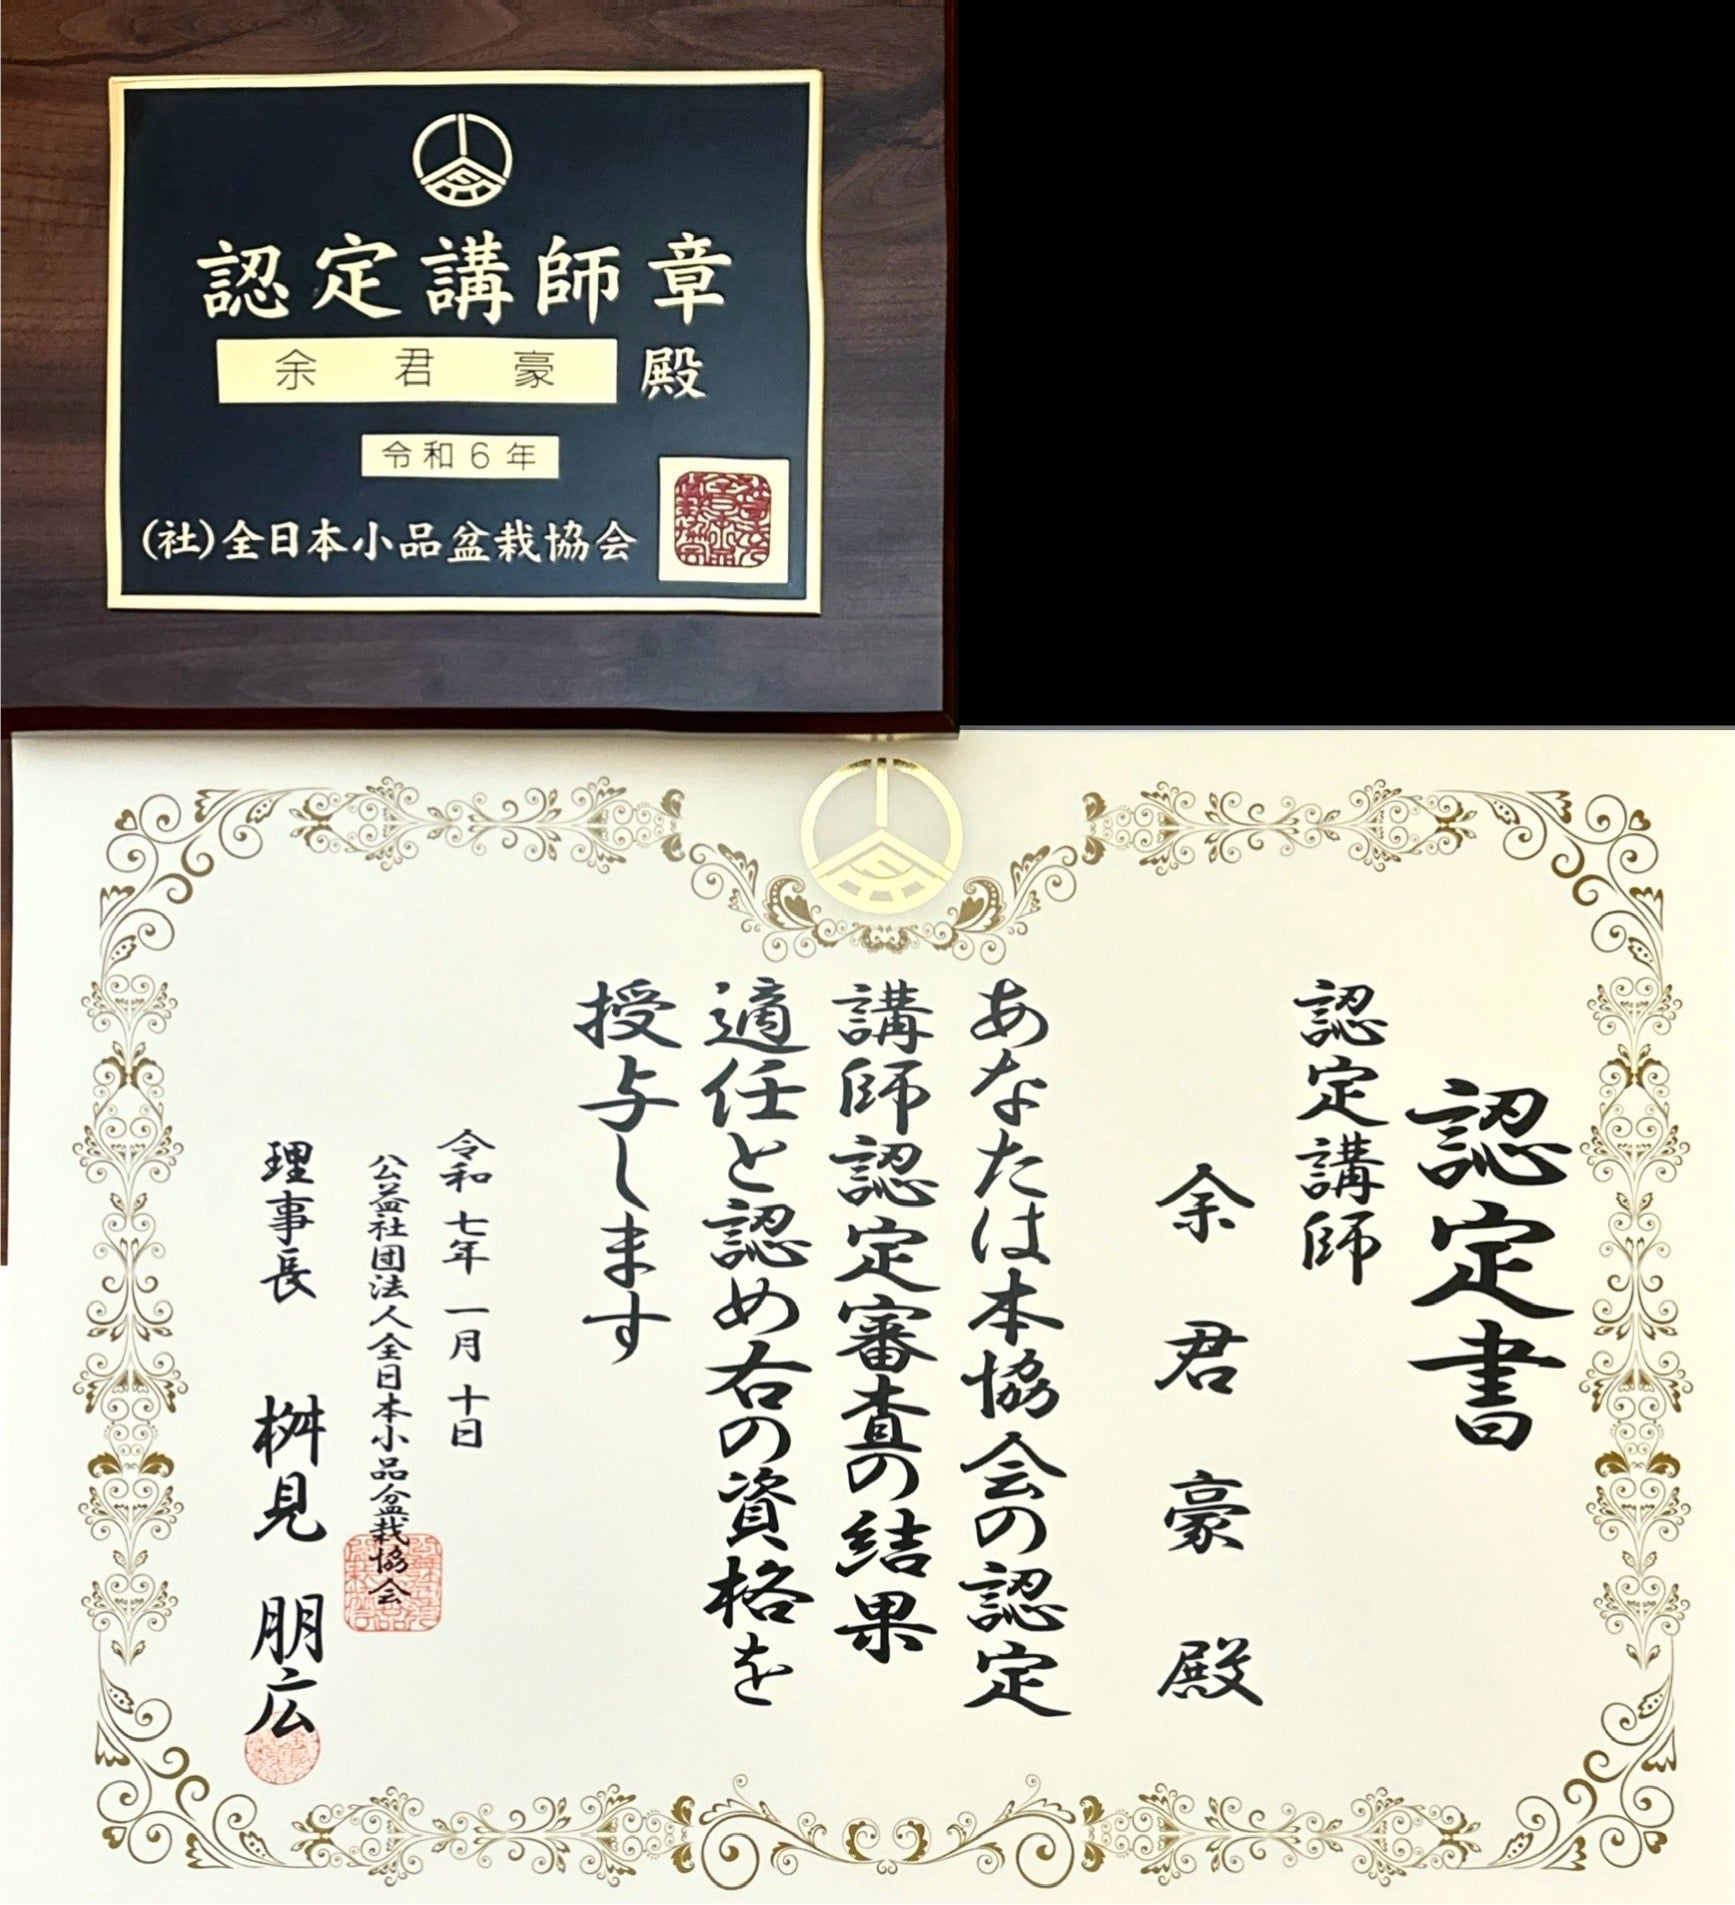 認定講師章
余君豪 殿
令和6年
(社)全日本小品盆栽協会
認定書
認定講師
余君豪殿
あなたは本協会の認定
講師認定審査の結果
適任と認め右の資格を
授与します
令和七年一月十日
公益社団法人全日本小品盆栽協会
理事長 桝見朋広